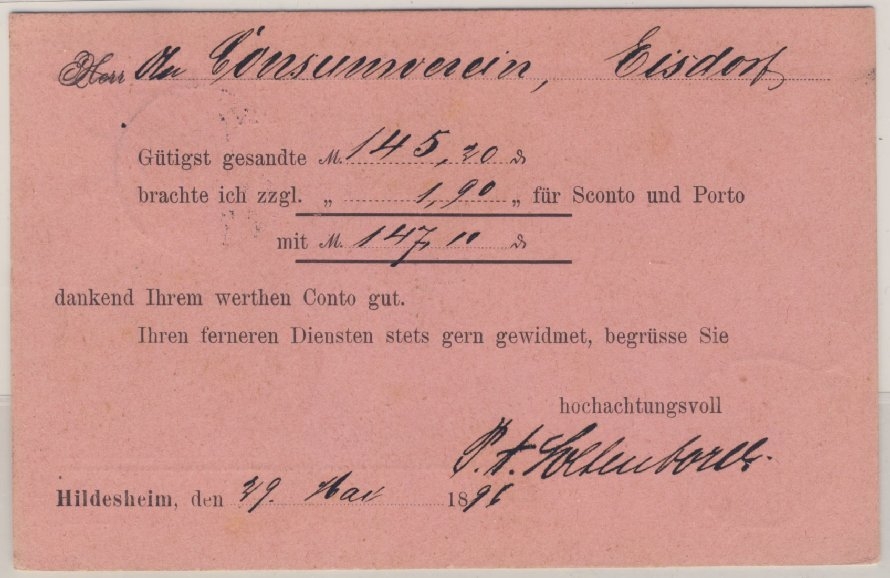 Herr den Consumverein, Eisdorf
Gütigst gesandte M. 145,20 ₰
brachte ich zzgl. „ 1,90 „ für Sconto und Porto
mit M. 147,10 ₰
dankend Ihrem werthen Conto gut.
Ihren ferneren Diensten stets gern gewidmet, begrüsse Sie
hochachtungsvoll
Hildesheim, den 29. Mai 1891